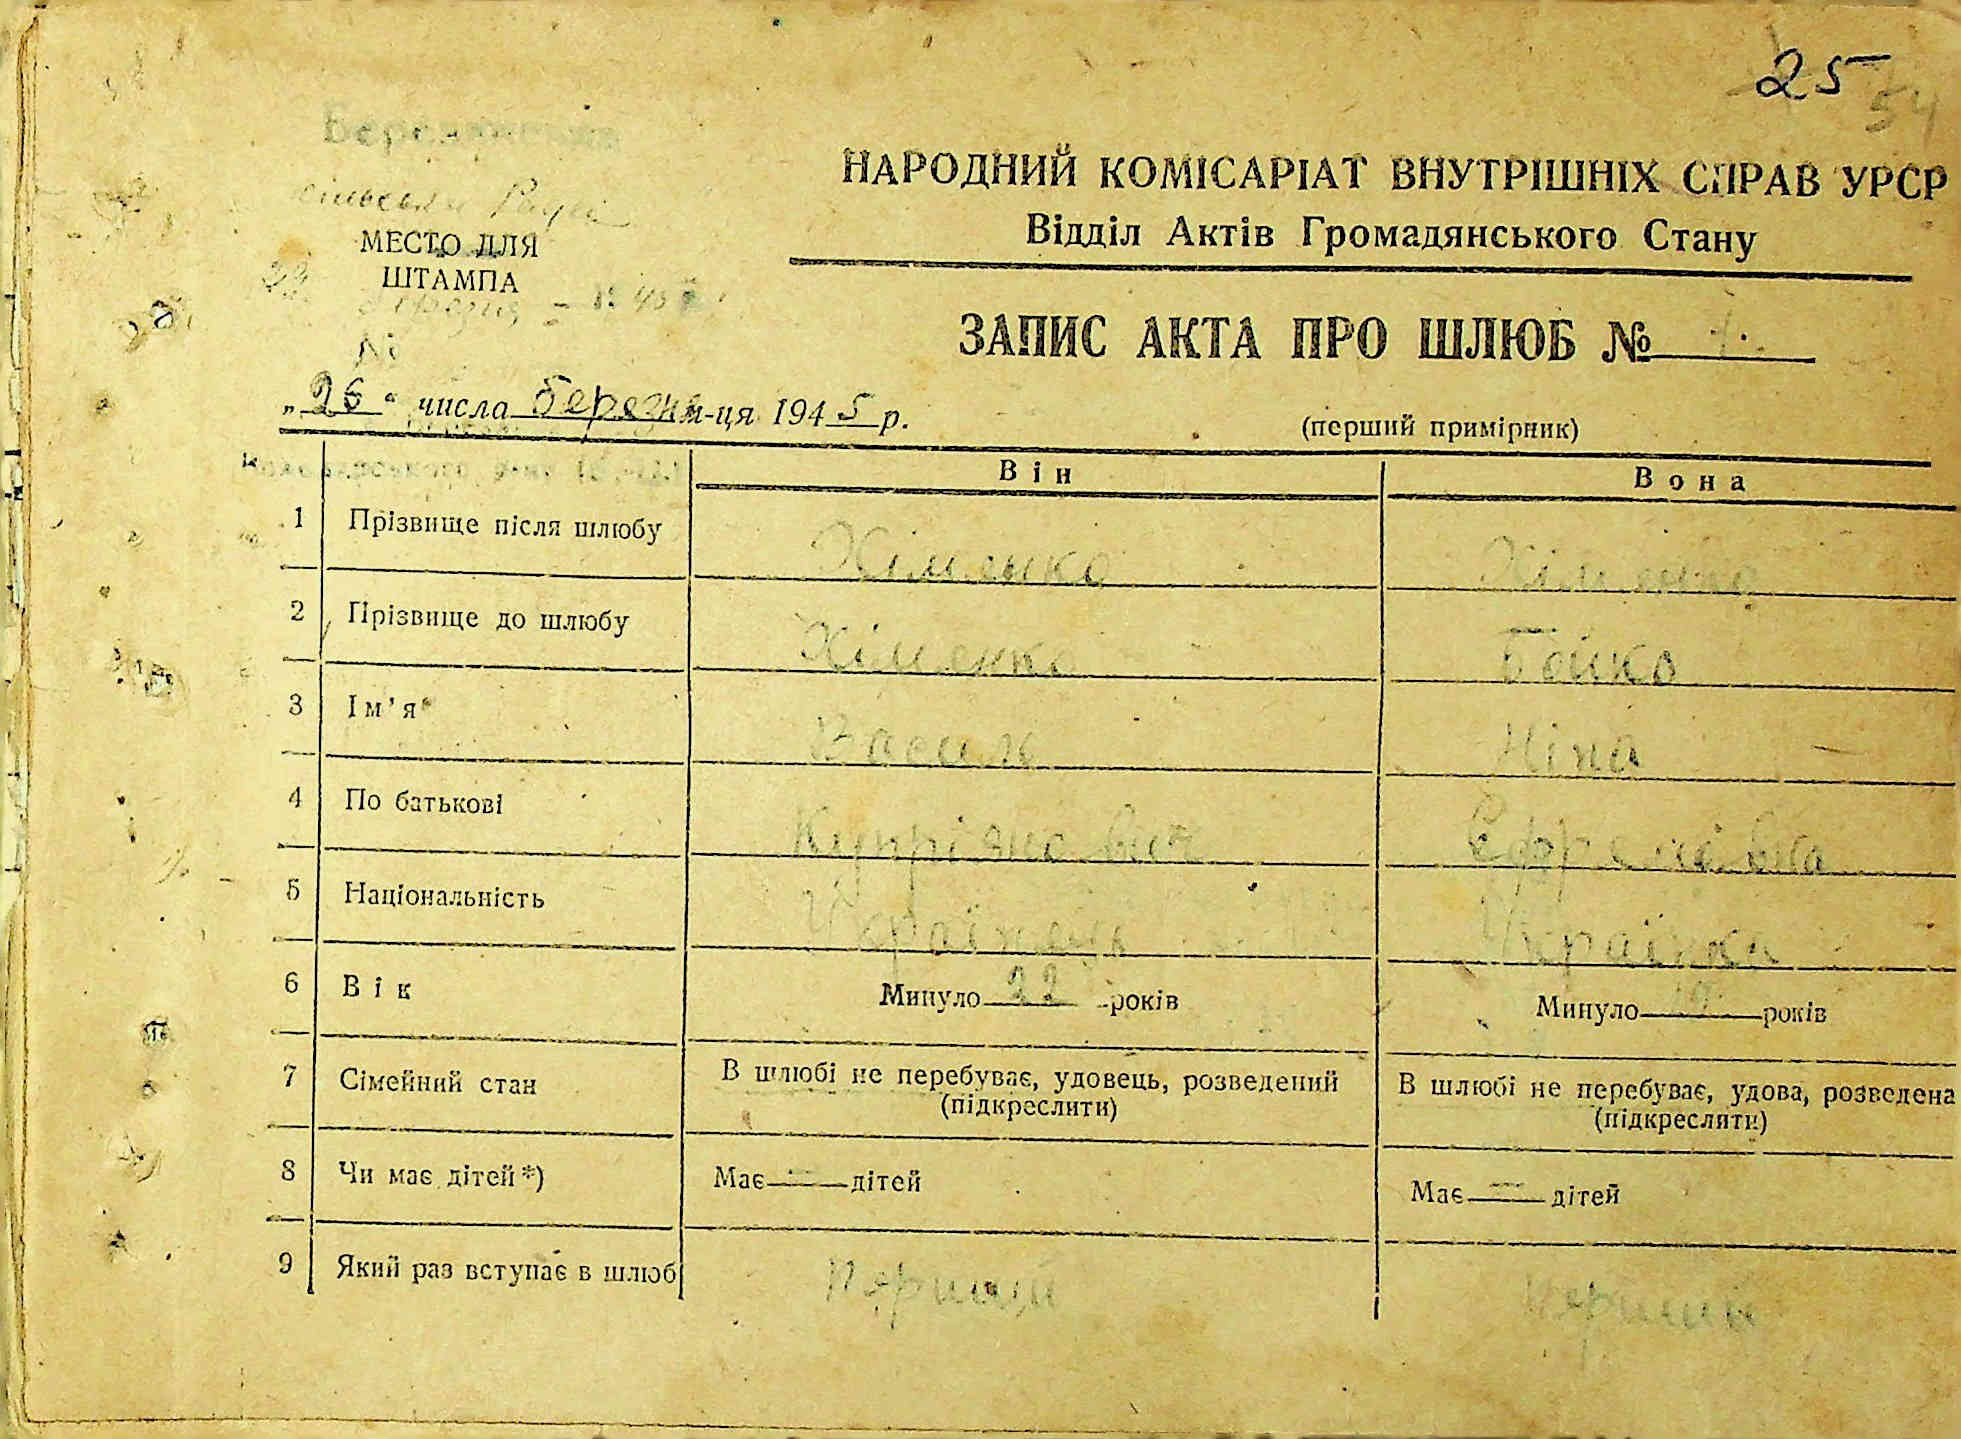 25
54
сільська Рада
НАРОДНИЙ КОМІСАРІАТ ВНУТРІШНІХ СПРАВ УРСР
Відділ Актів Громадянського Стану
МЕСТО ДЛЯ
ШТАМПА
ЗАПИС АКТА ПРО ШЛЮБ № 1.
„26“ числа березня м-ця 1945 р.
(перший примірник)
Він Вона
1 Прізвище після шлюбу Хіменко Хіменко
2 Прізвище до шлюбу Хіменко Бойко
3 Ім’я Василь Ніна
4 По батькові Купріянович Єфремівна
5 Національність Українець Українка
6 Вік Минуло 22 років Минуло років
7 Сімейний стан В шлюбі не перебуває, удовець, розведений (підкреслити) В шлюбі не перебуває, удова, розведена (підкреслити)
8 Чи має дітей*) Має — дітей Має — дітей
9 Який раз вступає в шлюб Перший Перший